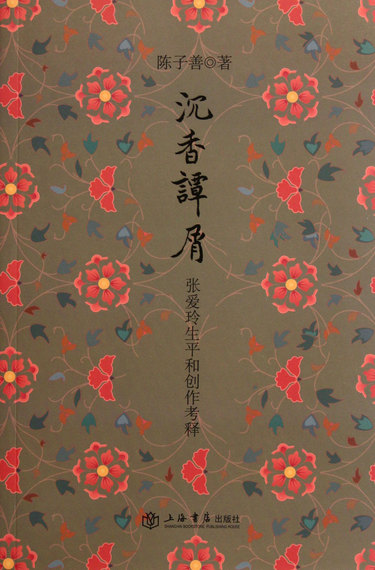 陈子善◎著
沉香譚屑
张爱玲生平和创作考释
上海书店出版社
SHANGHAI BOOKSTORE PUBLISHING HOUSE